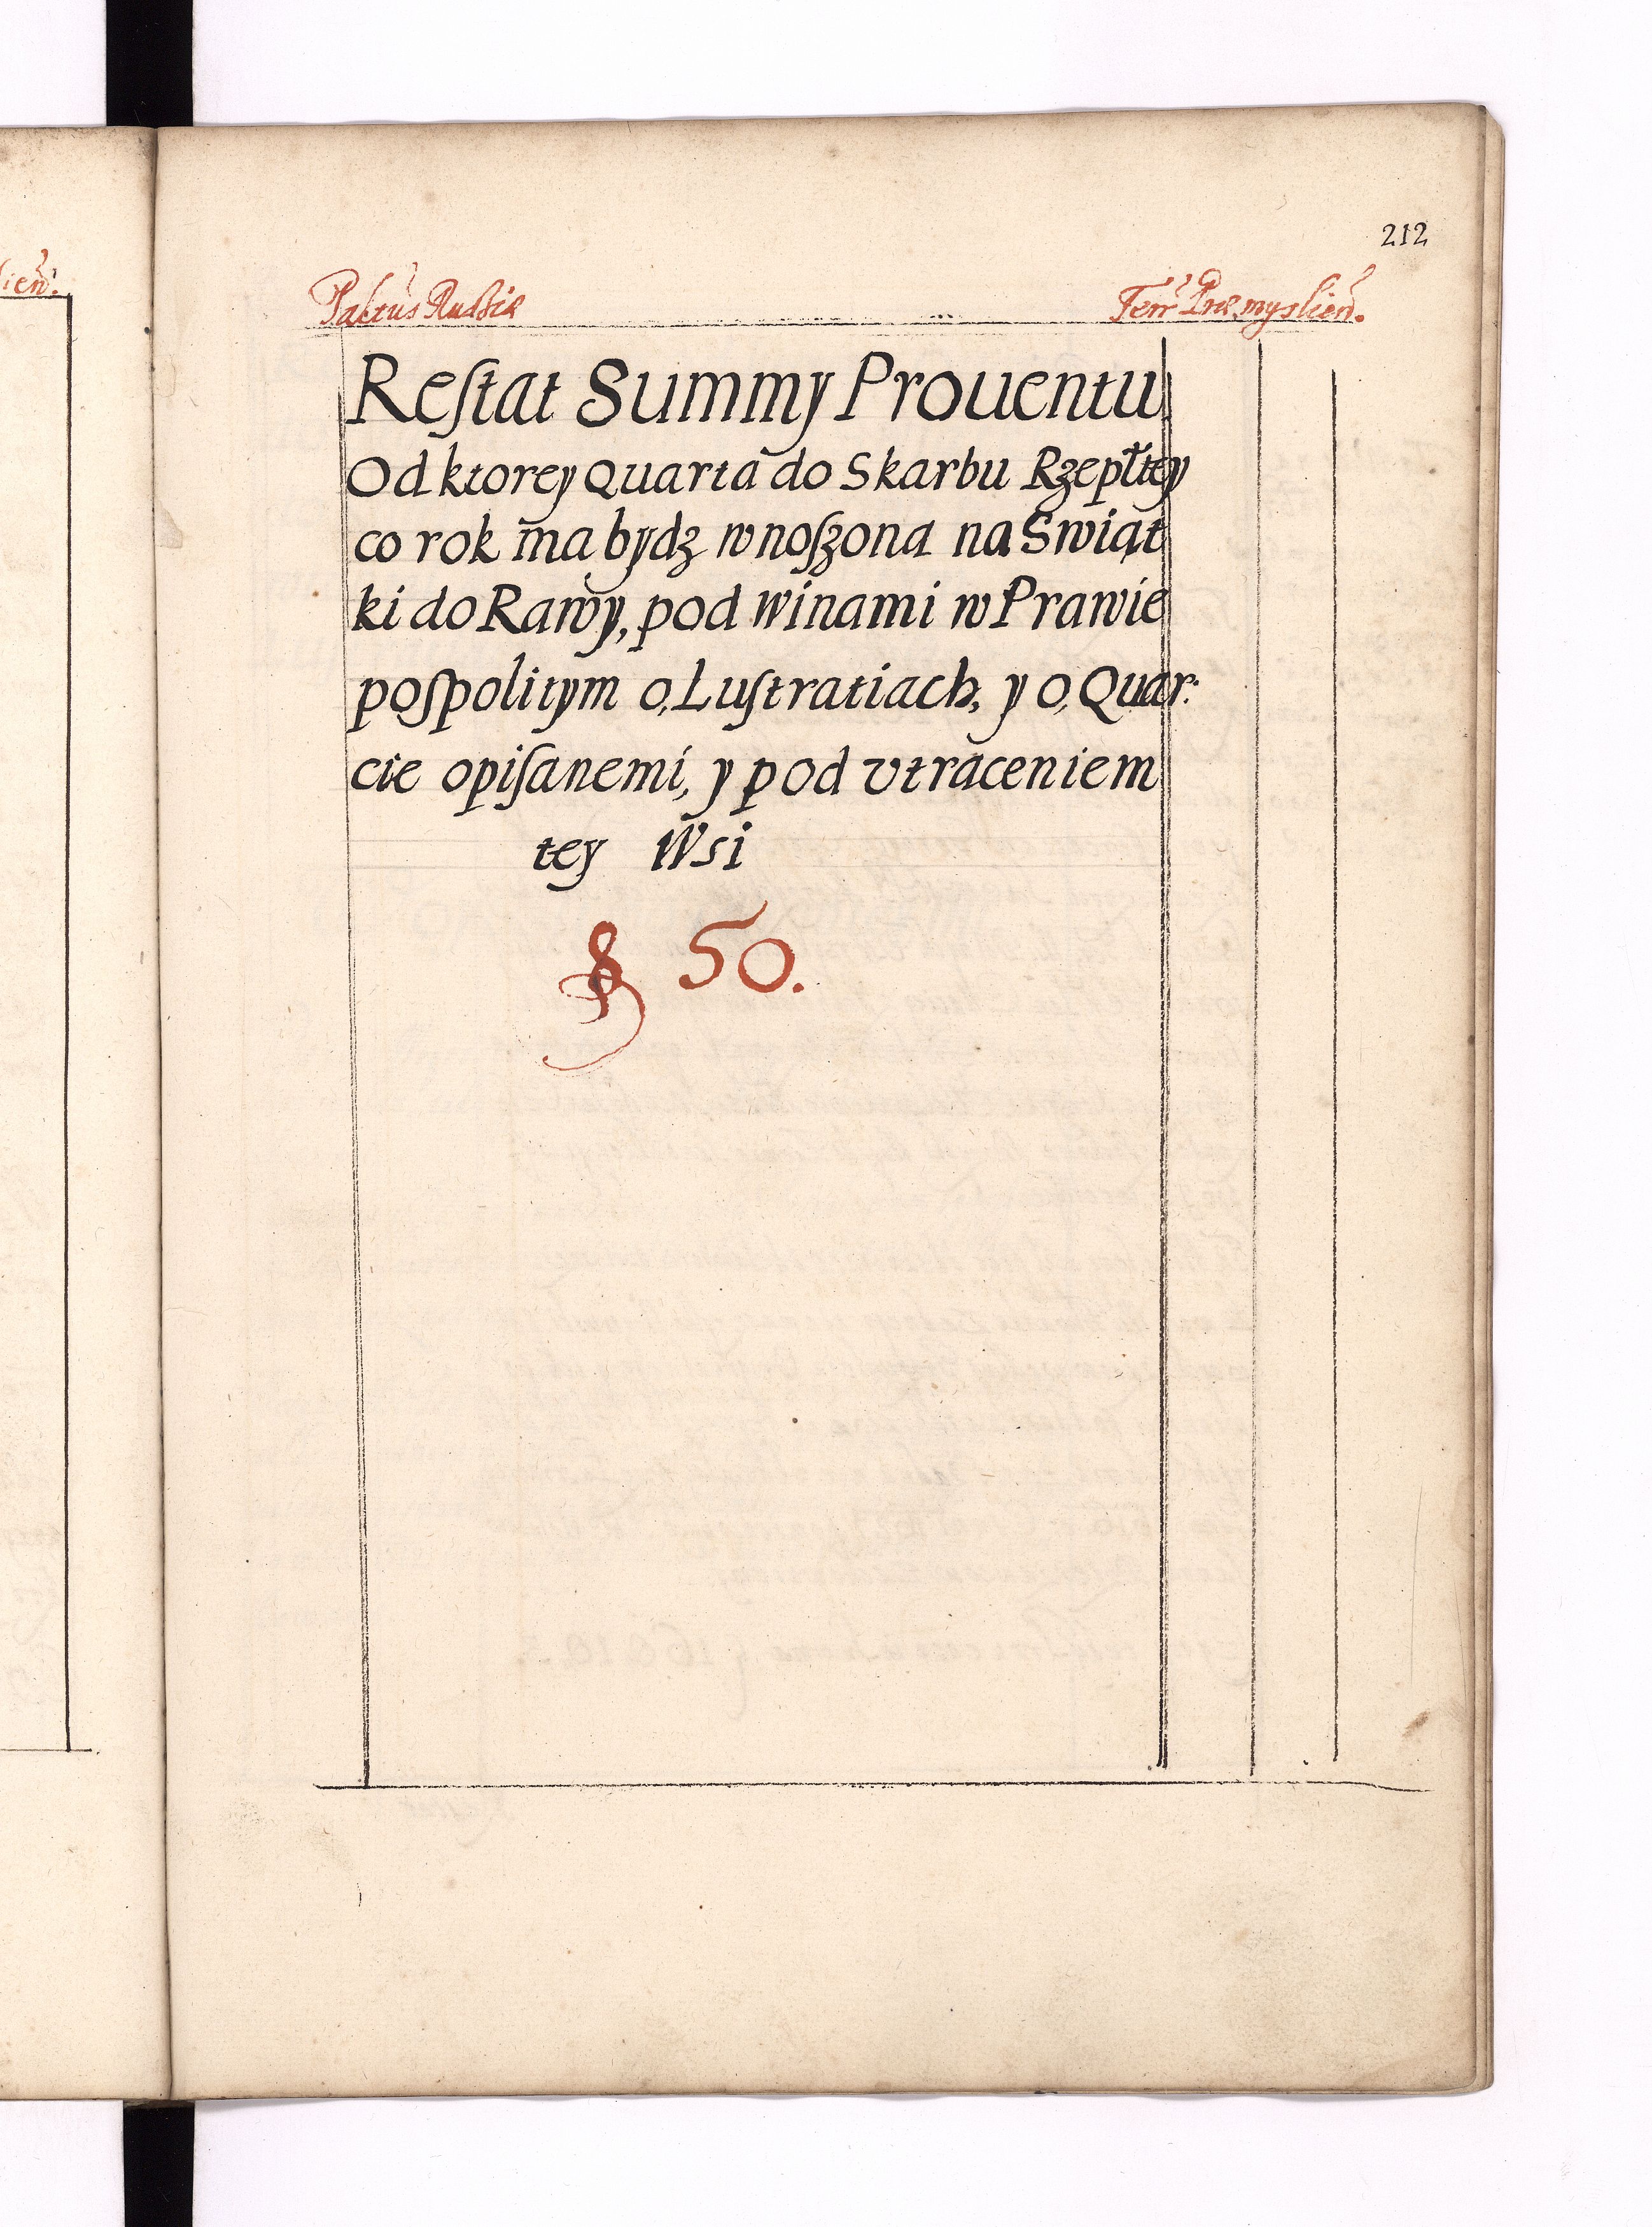 212
Palatus Russiæ
Terr Præmyslien.
Restat Summy Prouentu
Od ktorey Quarta do Skarbu Rzepltey
co rok ma bydz wnoszona na Swiąt
ki do Rawy, pod winami w Prawie
pospolitym o, Lustratiach, y o, Quar:
cie opisanemi, y pod vtraceniem
tey Wsi
ƒ 50.